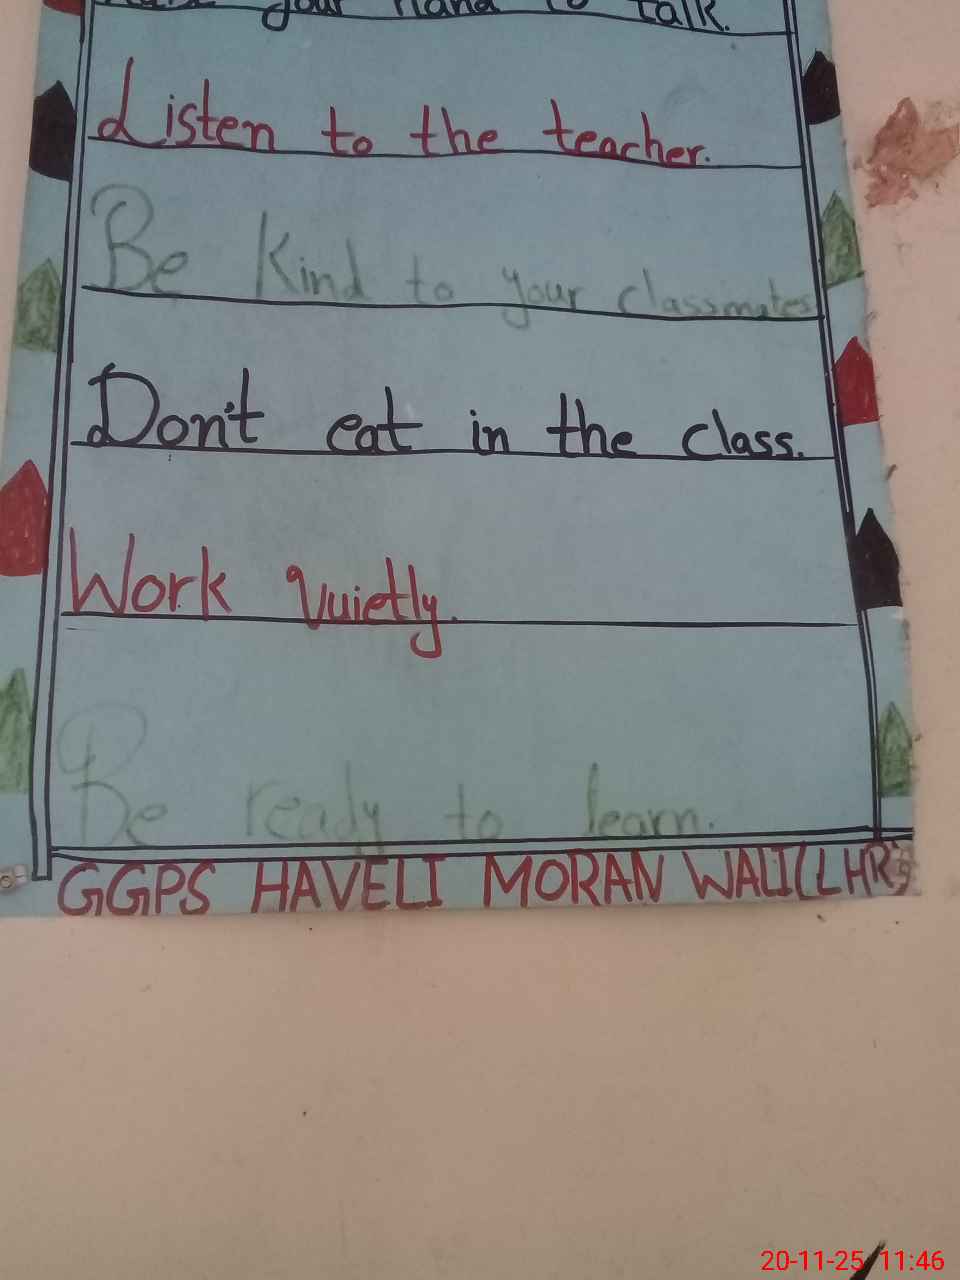 your hand to talk.
Listen to the teacher.
Be Kind to your classmates
Don't eat in the class.
Work Quietly.
Be ready to learn.
GGPS HAVELI MORAN WALI(LHR)
20-11-25 11:46